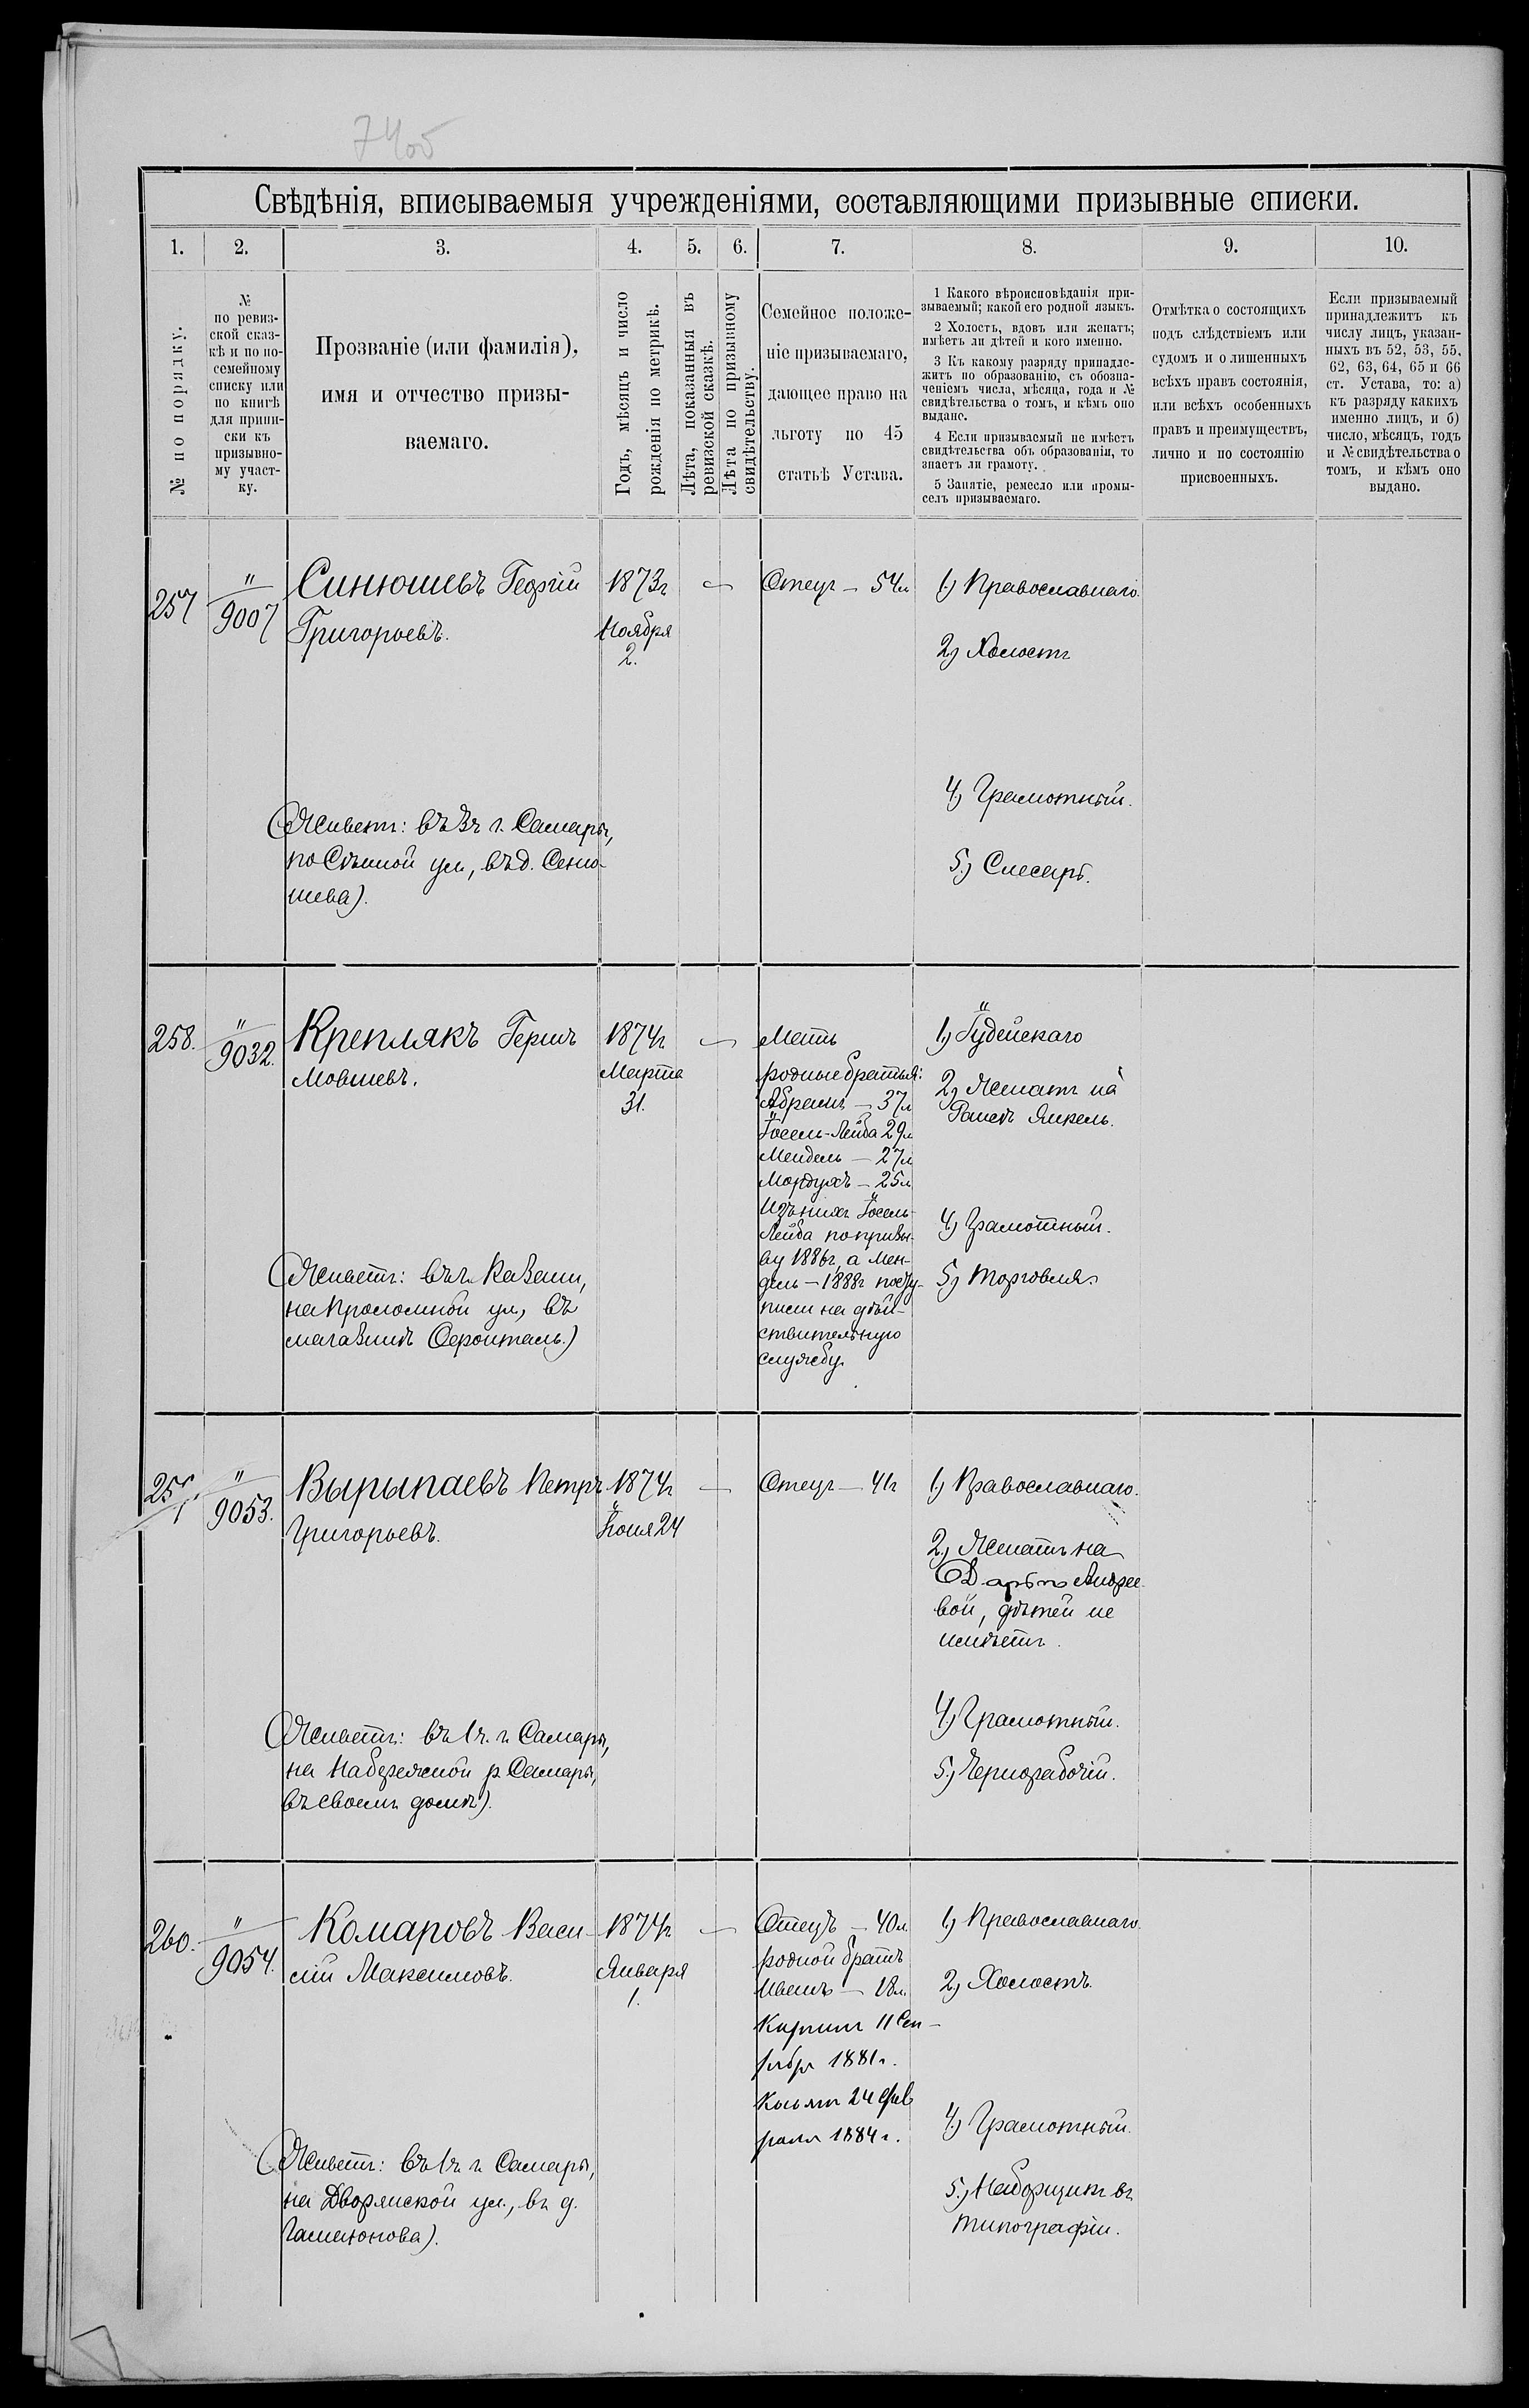 7405
Свѣдѣнія, вписываемыя учрежденіями, составляющими призывные списки.
1. 2. 3. 4. 5. 6. 7. 8. 9. 10.
№ по порядку.
№
по ревиз-
ской сказ-
кѣ и по по-
семейному
списку или
по книгѣ
для припи-
ски къ
призывно-
му участ-
ку.
Прозваніе (или фамилія),
имя и отчество призы-
ваемаго.
Годъ, мѣсяцъ и число
рожденія по метрикѣ.
Лѣта, показанныя въ
ревизской сказкѣ.
Лѣта по призывному
свидѣтельству.
Семейное положе-
ніе призываемаго,
дающее право на
льготу по 45
статьѣ Устава.
1 Какого вѣроисповѣданія при-
зываемый; какой его родной языкъ.
2 Холостъ, вдовъ или женатъ;
имѣетъ ли дѣтей и кого именно.
3 Къ какому разряду принадле-
житъ по образованію, съ обозна-
ченіемъ числа, мѣсяца, года и №
свидѣтельства о томъ, и кѣмъ оно
выдано.
4 Если призываемый не имѣетъ
свидѣтельства объ образованіи, то
знаетъ ли грамоту.
5 Занятіе, ремесло или промы-
селъ призываемаго.
Отмѣтка о состоящихъ
подъ слѣдствіемъ или
судомъ и о лишенныхъ
всѣхъ правъ состоянія,
или всѣхъ особенныхъ
правъ и преимуществъ,
лично и по состоянію
присвоенныхъ.
Если призываемый
принадлежитъ къ
числу лицъ, указан-
ныхъ въ 52, 53, 55,
62, 63, 64, 65 и 66
ст. Устава, то: а)
къ разряду какихъ
именно лицъ, и б)
число, мѣсяцъ, годъ
и № свидѣтельства о
томъ, и кѣмъ оно
выдано.
257
"
9007
Синюшевъ Георгій
Григорьевъ.
1873г
Ноября
2.
—
Отецъ — 54л
1.) Православнаго.
2.) Холостъ
4.) Грамотный.
5.) Слесарь.
(Живетъ: въ 3ч г. Самары,
по Сѣнной ул., въ д. Сеню-
шева).
258.
"
9032.
Креплякъ Гершъ
Мовшевъ.
1874г
Марта
31.
—
Мать
родные братья:
Абрамъ — 37л
Іосель-Лейба 29л
Мендель — 27л
Мордухъ — 25л
Изъ нихъ Іосель-
Лейба по призы-
ву 1886г, а Мен-
дель — 1888г посту-
пили на дѣй-
ствительную
службу.
1.) Іудейскаго
2.) Женатъ на
Рашѣ Янкель.
4.) Грамотный.
5.) Торговля.
(Живетъ: въ г. Казани,
на Проломной ул., въ
магазинѣ)
259.
"
9053.
Вырыпаевъ Петръ
Григорьевъ.
1874г
Іюня 24
—
Отецъ — 41г
1.) Православнаго.
2.) Женатъ на
Дарьѣ Андрее-
вой, дѣтей не
имѣетъ.
4.) Грамотный.
5.) Чернорабочій.
(Живетъ: въ 1ч. г. Самары,
на Набережной р. Самары,
въ своемъ домѣ).
260.
"
9054.
Комаровъ Васи-
лій Максимовъ.
1874г
Января
1.
—
Отецъ — 40л
родной братъ
Иванъ — 18л.
11 Сен-
тября 1881г.
24 Фев
раля 1884г.
1.) Православнаго.
2.) Холостъ.
4.) Грамотный.
5.) Наборщикъ въ
типографіи.
(Живетъ: въ 1ч г. Самары,
на Дворянской ул., въ д.